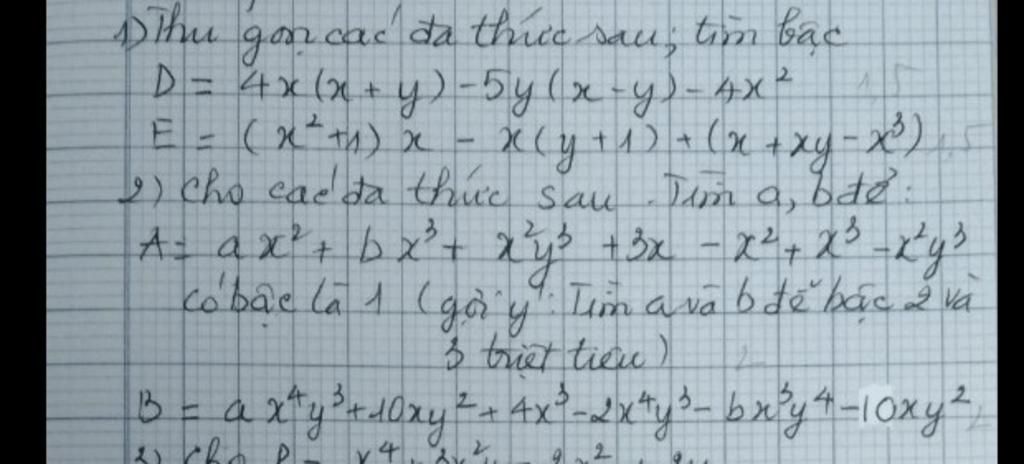 1) Thu gọn các đa thức sau; tìm bậc
D = 4x(x + y) - 5y(x - y) - 4x²
E = (x² + 1) x - x(y + 1) + (x + xy - x³)
2) Cho các đa thức sau. Tìm a, b để:
A = ax² + bx³ + x²y³ + 3x - x² + x³ - x²y³
có bậc là 1 (gợi ý: Tìm a và b để bậc 2 và
3 triệt tiêu)
B = ax⁴y³ + 10xy² + 4x³ - 2x⁴y³ - bx³y⁴ - 10xy²
3) Cho P = x⁴